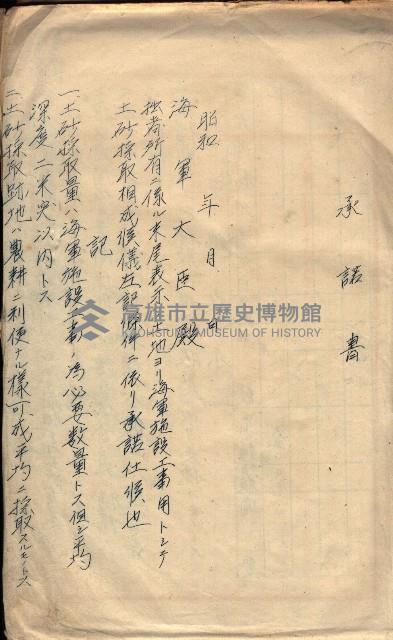 承諾書
昭和　年　月　日
海軍大臣殿
拙者所有ニ係ル末尾表示ノ土地ヨリ海軍施設工事用トシテ
土砂採取相成候儀左記條件ニ依リ承諾仕候也
記
一、土砂採取量ハ海軍施設工事ノ為必要数量トス但シ平均
深度二米突以内トス
二、土砂採取跡地ハ農耕ニ利便ナル様可成平均ニ採取スルモノトス
高雄市立歷史博物館
KAOHSIUNG MUSEUM OF HISTORY